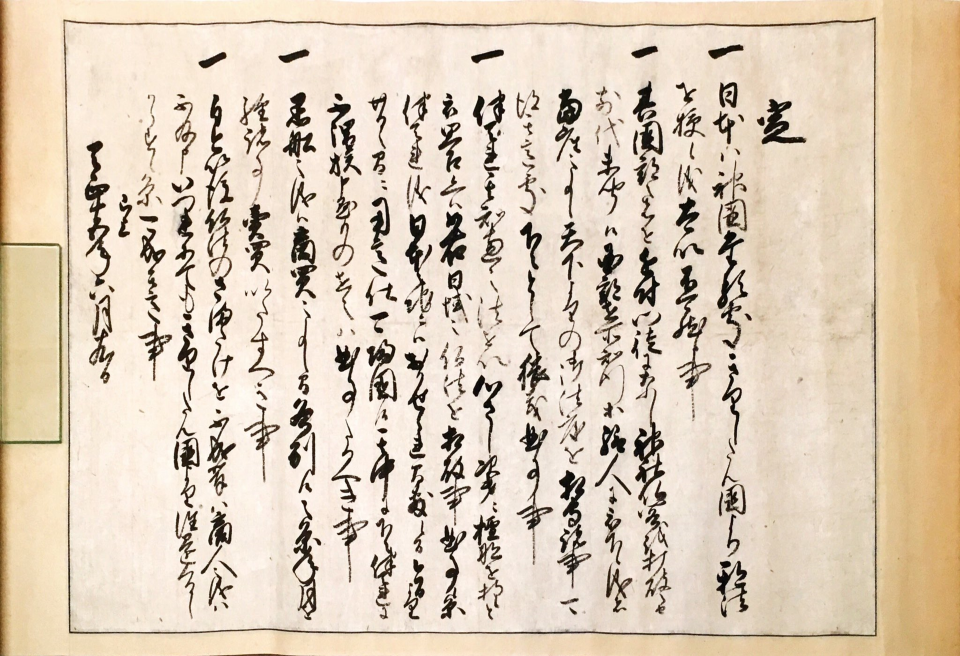 定
一 日本ハ神国たる処きりしたん国より邪法
を授候儀太以不可然候事
一 其国郡之者を近付門徒になし神社仏閣を打破之由
前代未聞候国郡在所知行等給人に被下候儀者
当座之事候天下よりの御法度を相守諸事可
得其意処下々として猥義曲事事
一 伴天連其知恵之法を以心さし次第ニ檀那を持候と
被思召候へハ如右日域之仏法を相破事曲事候条
伴天連儀日本之地ニハおかせられ間敷候間今日より
廿日之間ニ用意仕可帰国候其中に下々伴天連に
不謂族申懸もの在之ハ曲事たるへき事
一 黒船之儀ハ商買之事候間各別候之条年月を
経諸事売買いたすへき事
一 自今以後仏法のさまたけを不成輩ハ商人之儀ハ
不及申いつれにてもきりしたん国より往還く
るしからす候条可成其意事
已上
天正十五年六月十九日